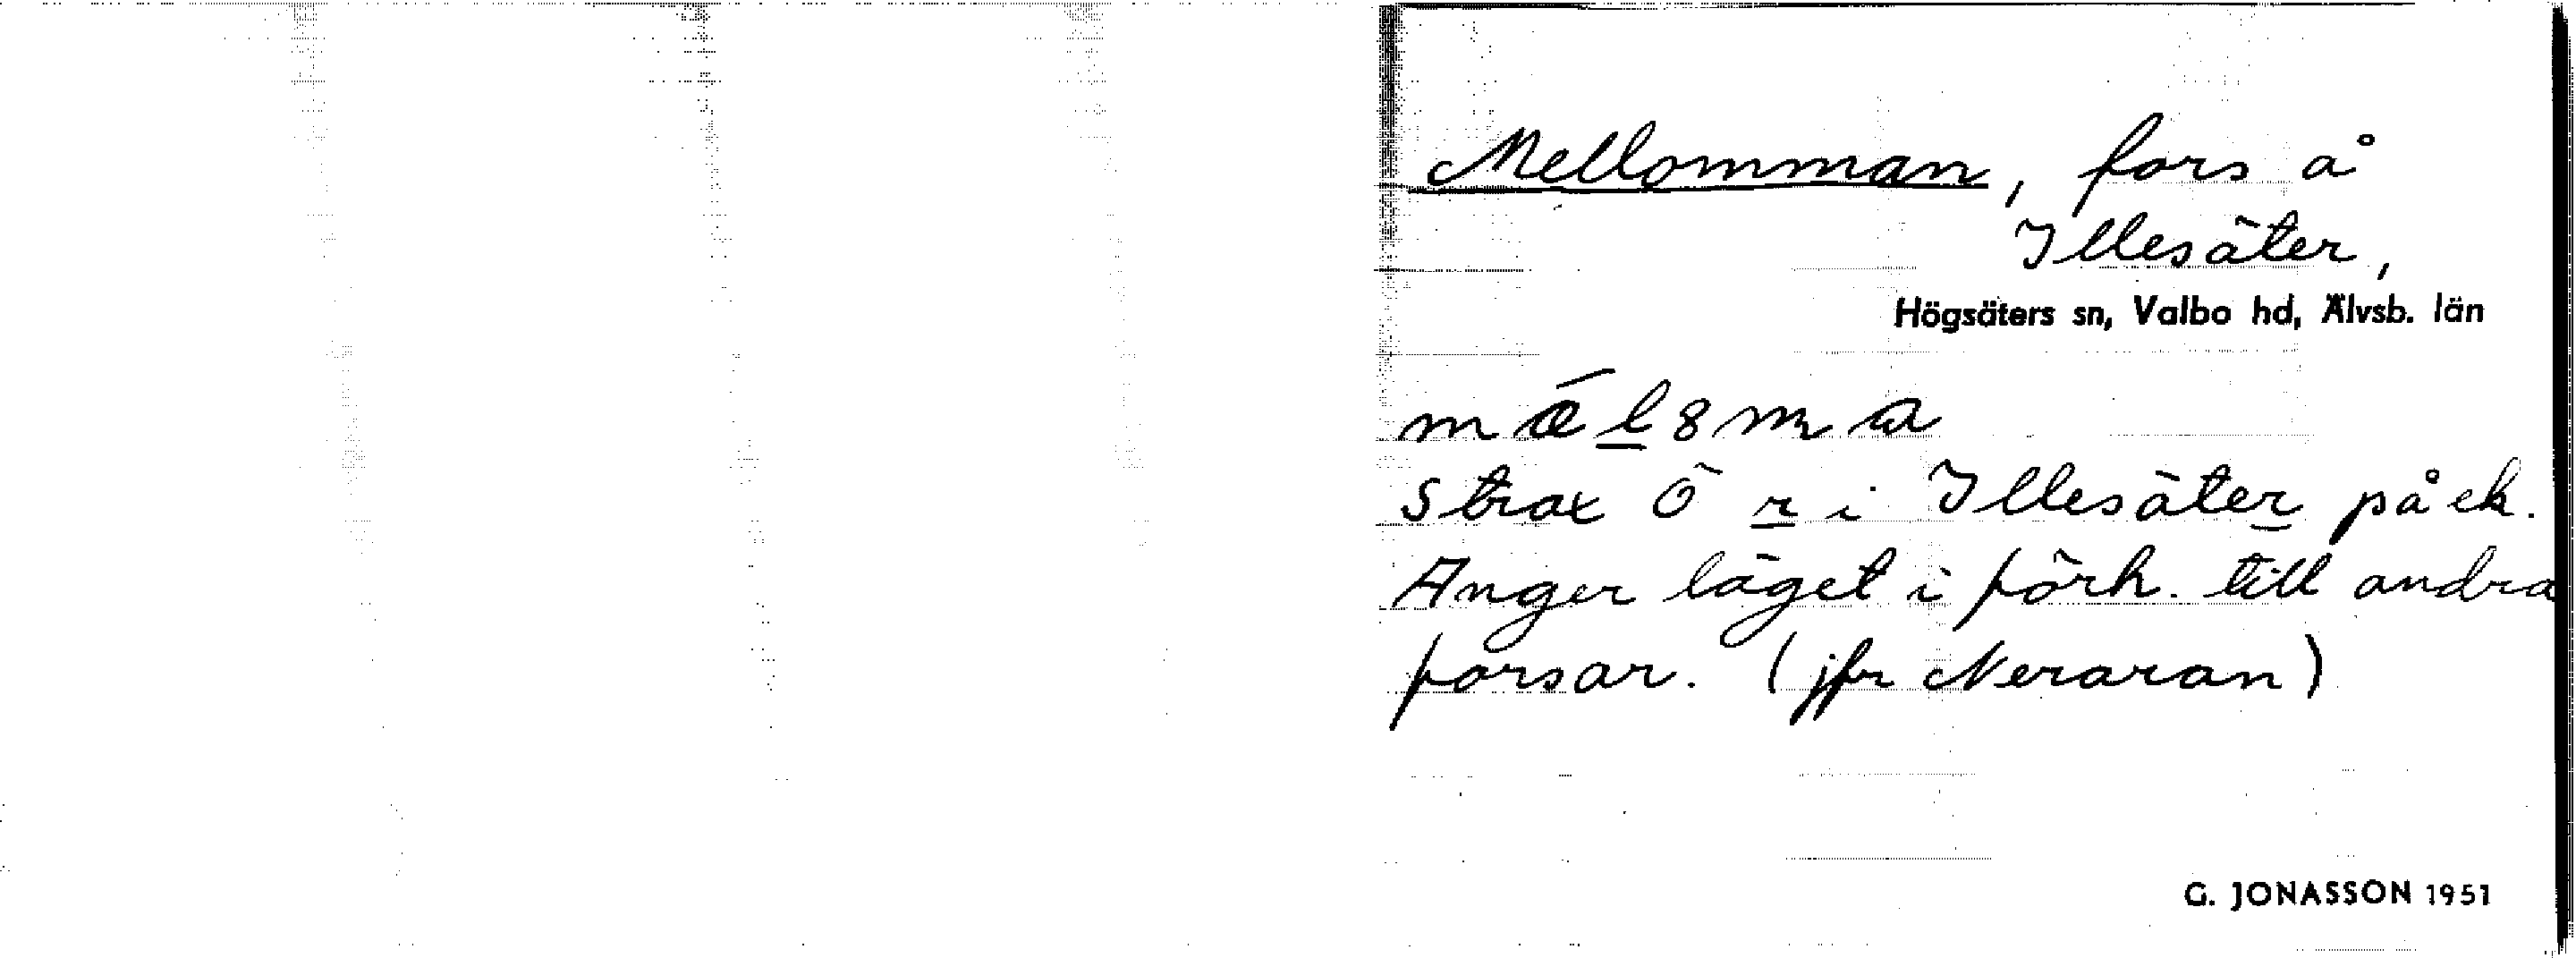 Mellomman, fors å
Illesäter,
Högsäters sn, Valbo hd, Älvsb. län
mæ̀l8ma
Strax Ö r i Illesäter på ek.
Anger läget i förh. till andra
forsar. (jfr Neraran)
G. JONASSON 1951